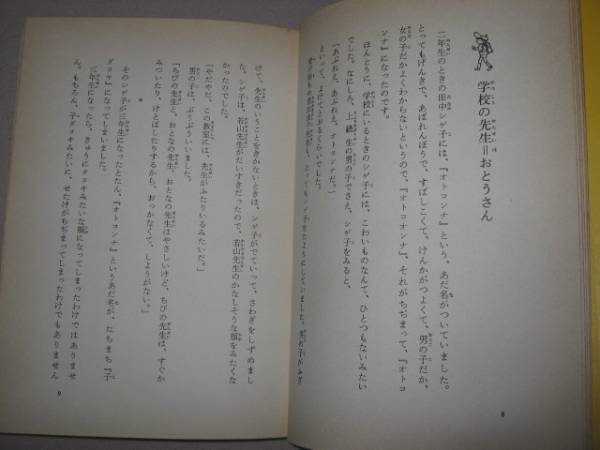 学校の先生＝おとうさん
二年生のときの田中シゲ子には、『オトコンナ』という、あだ名がついていました。
とってもげんきで、あばれんぼうで、すばしこくて、けんかがつよくて、男の子だか、
女の子だかよくわからないというので、『オトコオンナ』、それがちぢまって、『オトコ
ンナ』になったのです。
ほんとうに、学校にいるときのシゲ子には、こわいものなんて、ひとつもないみたい
でした。なにしろ、上級生の男の子でさえ、シゲ子をみると、
「あぶねえ、あぶねえ、オトコンナだ。」
といって、よけてとおるくらいでした。
8
けて、先生のいうことをきかないときは、シゲ子がでていって、さわぎをしずめまし
た。シゲ子は、若山先生がだいすきだったので、若山先生のかなしそうな顔をみたくな
かったのでした。
「やだやだ、この教室には、先生がふたりいるみたいだ。」
男の子は、ぶうぶういいました。
「ちびの先生と、おとなの先生。おとなの先生はやさしいけど、ちびの先生は、すぐか
みついたり、けとばしたりするから、おっかなくて、しようがない。」
＊
そのシゲ子が三年生になったとたん、『オトコンナ』というあだ名が、たちまち『子
ダヌキ』になってしまいました。
三年生になったら、きゅうにタヌキみたいな顔になってしまったわけではありませ
ん。もちろん、子ダヌキみたいに、せたけがちぢまってしまったわけでもありません
9